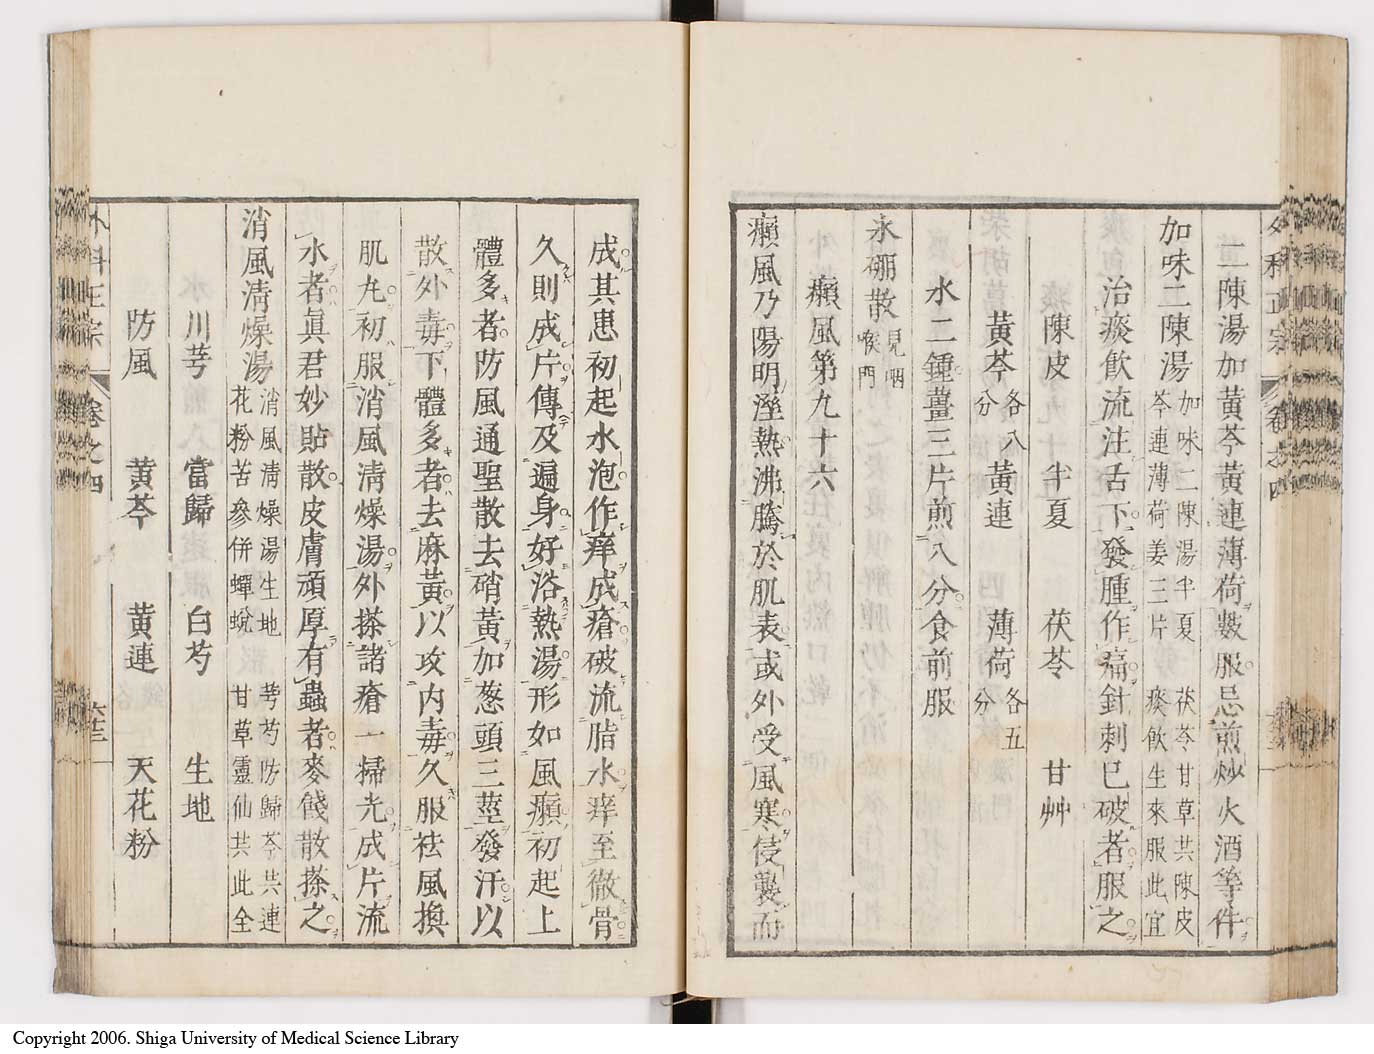 外科正宗 卷之四
二陳湯加黃芩黃連薄荷數服忌煎炒火酒等件
加味二陳湯 加味二陳湯半夏 茯苓甘草共陳皮 芩連薄荷姜三片 痰飲生來服此宜
治痰飲流注舌下發腫作痛針刺已破者服之
陳皮 半夏 茯苓 甘艸
黃芩各八分 黃連 薄荷各五分
水二鍾薑三片煎八分食前服
氷硼散見咽喉門
癩風第九十六
癩風乃陽明溼熱沸騰於肌表或外受風寒侵襲而
成其患初起水泡作痒成瘡破流脂水痒至徹骨
久則成片傳及遍身好浴熱湯形如風癩初起上
體多者防風通聖散去硝黃加葱頭三莖發汗以
散外毒下體多者去麻黃以攻內毒久服祛風換
肌丸初服消風清燥湯外搽諸瘡一掃光成片流
水者眞君妙貼散皮膚頑厚有蟲者麥餞散搽之
消風清燥湯 消風清燥湯生地 芎芍防歸芩共連 花粉苦參併蟬蛻 甘草靈仙共此全
川芎 當歸 白芍 生地
防風 黃芩 黃連 天花粉
外科正宗 卷之四 六十三
Copyright 2006. Shiga University of Medical Science Library